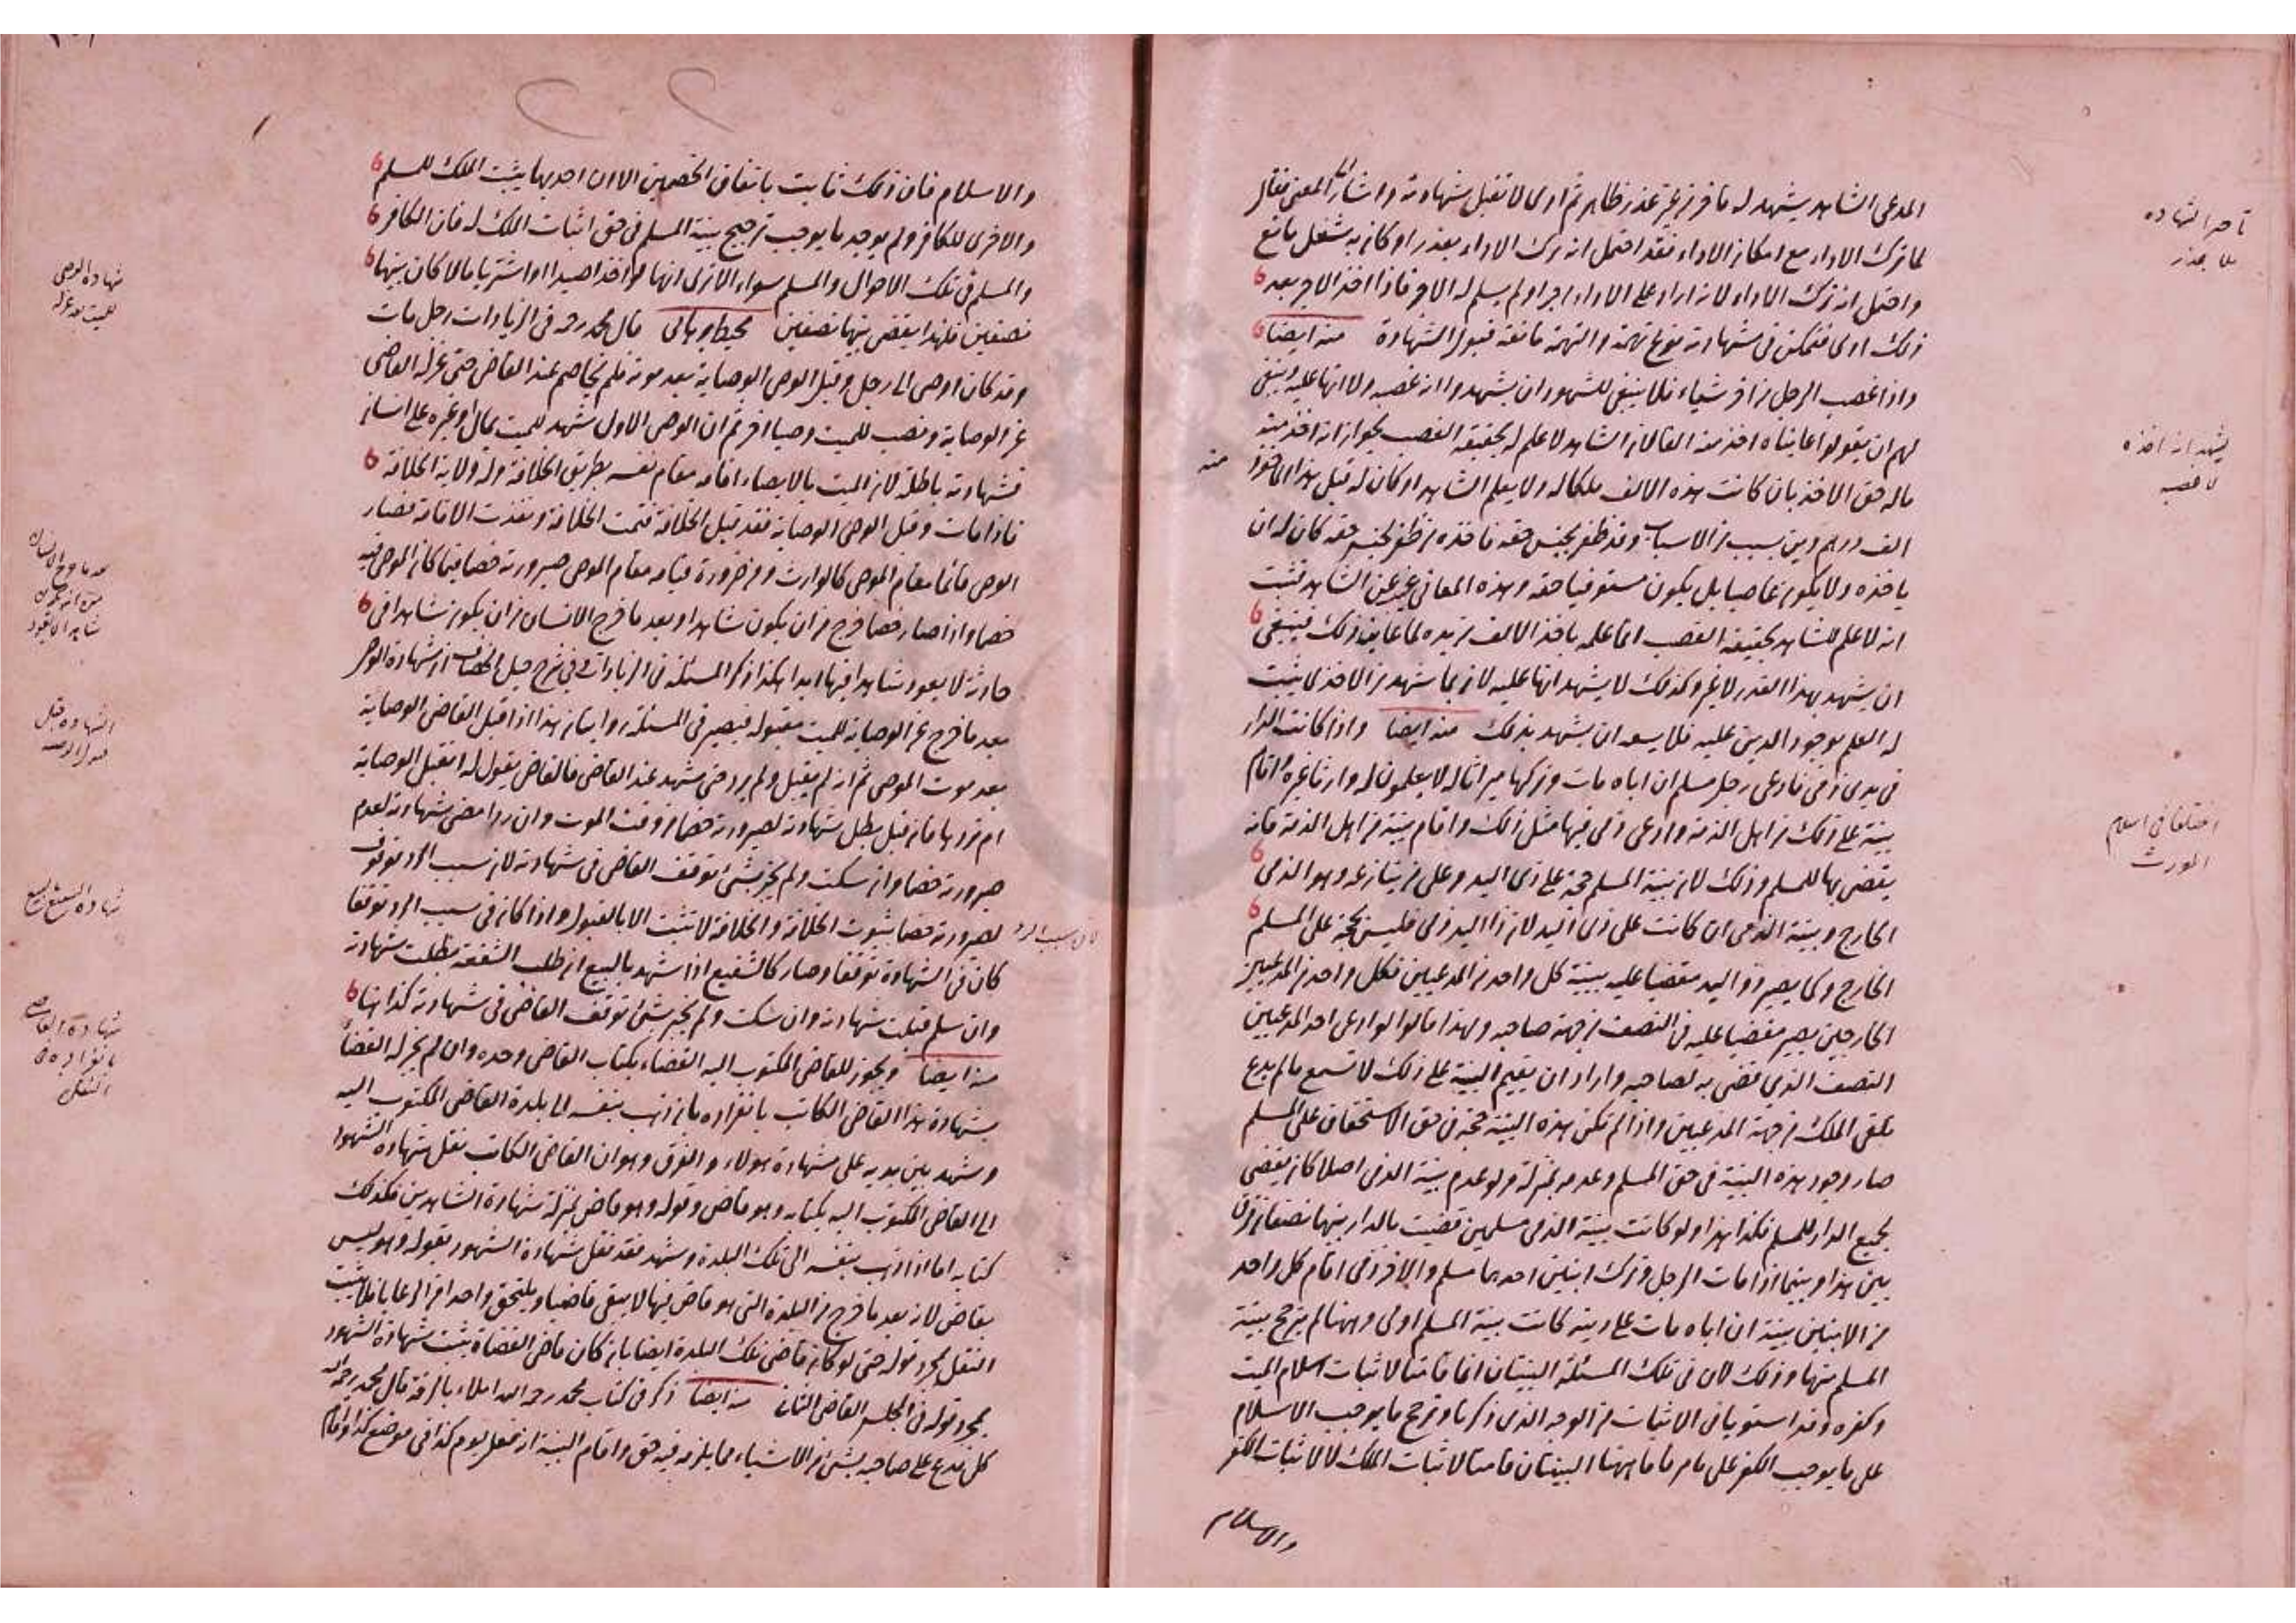 المدعى الشاهد يشهد له فاخر من غير عذر ظاهر ثم ادى لا تقبل شهادته واشار الى المعنى فقال
لما ترك الاداء مع امكان الاداء فقد احتمل انه ترك الاداء بعذر او كان به شغل مانع
واحتمل انه ترك الاداء لانه اراد على الاداء اجرا ولم يسلم له الاجر فاذا اخذ الاجر بعد
ذلك ادى فتمكن فى شهادته نوع تهمة والتهمة مانعة قبول الشهادة منه ايضا
واذا غصب الرجل من اخر شياء فلا ينبغى للشهود ان يشهدوا انه غصبه ولا انها عليه وينبغى
لهم ان يقولوا عايناه اخذ منه الفا لان الشاهد لا علم له بحقيقة الغصب لجواز انه اخذ منه
ماله حق الاخذ بان كانت هذه الالف ملكا له ولا يعلم الشاهد او كان له قبل هذا الماخوذ منه
الف درهم دين بسبب من الاسباب وقد ظفر بجنس حقه فاخذه من ظفر بجنس حقه كان له ان
ياخذه ولا يكون غاصبا بل يكون مستوفيا حقه وهذه المعانى غيب عن الشاهد فثبت
انه لا علم للشاهد بحقيقة الغصب انما علمه باخذ الالف من يده لما عاين ذلك فينبغى
ان يشهد بهذا القدر لا غير وكذلك لا يشهد انها عليه لان بما شهد من الاخذ لا يثبت
له العلم بوجود الدين عليه فلا يسعه ان يشهد بذلك منه ايضا واذا كانت الدار
فى يدى ذمى فادعى رجل مسلم ان اباه مات وتركها ميراثا له لا يعلمون له وارثا غيره واقام
بينة على ذلك من اهل الذمة وادعى ذمى فيها مثل ذلك واقام بينة من اهل الذمة فانه
يقضى بها للمسلم وذلك لان بينة المسلم حجة على ذى اليد وعلى من ينازعه وهو الذمى
الخارج وبينة الذمى ان كانت على ذى اليد لان ذا اليد ذمى فليس بحجة على المسلم
الخارج وكما يصير ذو اليد مقضيا عليه ببينة كل واحد من المدعيين فكل واحد من المدعيين
الخارجين يصير مقضيا عليه فى النصف من جهة صاحبه ولهذا قالوا لو ادعى احد المدعيين
النصف الذى قضى به لصاحبه واراد ان يقيم البينة على ذلك لا تسمع ما لم يدع
تلقى الملك من جهة المدعيين واذا لم تكن هذه البينة حجة فى حق الاستحقاق على المسلم
صار وجود هذه البينة فى حق المسلم وعدمه بمنزلة ولو عدم بينة الذمى اصلا كان يقضى
بجميع الدار للمسلم فكذا هذا ولو كانت بينة الذمى مسلمين قضيت بالدار بينهما نصفان فرق
بين هذا وبينما اذا مات الرجل وترك ابنين احدهما مسلم والاخر ذمى اقام كل واحد
من الابنين بينة ان اباه مات على دينه كانت بينة المسلم اولى وههنا لم يترجح بينة
المسلم منهما وذلك لان فى تلك المسئلة البينتان انما قامتا لاثبات اسلام الميت
وكفره وقد استويا فى الاثبات من الوجه الذى ذكرنا وترجح ما يوجب الاسلام
على ما يوجب الكفر على ما مر فاما ههنا البينتان قامتا لاثبات الملك لا لاثبات الكفر
والاسلام
تاخير الشهادة
بلا عذر
يشهد انه اخذه
لا غصبه
اختلفا فى اسلام
المورث
والاسلام فان ذلك ثابت باتفاق الخصمين الا ان احديهما يثبت الملك للمسلم
والاخرى للكافر ولم يوجد ما يوجب ترجيح بينة المسلم فى حق اثبات الملك له فان الكافر
والمسلم فى تلك الاحوال والمسلم سواء الا ترى انهما لو اخذا صيدا او اشتريا مالا كان بينهما
نصفين فلهذا يقضى بينهما نصفين محيط برهانى قال محمد رحمه فى الزيادات رجل مات
وقد كان اوصى الى رجل وقبل الوصى الوصاية بعد موته فلم يخاصم عند القاضى حتى عزله القاضى
عن الوصاية ونصب للميت وصيا اخر ثم ان الوصى الاول شهد للميت بمال او غيره على انسان
فشهادته باطلة لان الميت بالايصاء اقامه مقام نفسه بطريق الخلافة وله ولاية الخلافة
فاذا مات وقبل الوصى الوصاية فقد قبل الخلافة فتمت الخلافة ونفذت الاقامة فصار
الوصى قائما مقام الموصى كالوارث ومن ضرورة قيامه مقام الموصى صيرورته خصما فيما كان الموصى فيه
خصما واذا صار خصما خرج من ان يكون شاهدا وبعد ما خرج الانسان من ان يكون شاهدا فى
حادثة لا يعود شاهدا فيها ابدا هكذا ذكر المسئلة فى الزيادات وفى شرح حيل الخصاف ان شهادة الوصى
بعد ما خرج عن الوصاية للميت مقبولة فيصير فى المسئلة روايتان هذا اذا قبل القاضى الوصاية
بعد موت الموصى ثم انه لم يقبل ولم يرد حتى شهد عند القاضى فالقاضى يقول له اتقبل الوصاية
ام تردها فان قبل بطل شهادته لصيرورته خصما من وقت الموت وان رد امضى شهادته لعدم
صيرورته خصما وان سكت ولم يخبر بشئ توقف القاضى فى شهادته لان سبب الرد موقوف
لصيرورته خصما ثبوت الخلافة والخلافة لا تثبت الا بالقبول واذا كان فى سبب الرد توقفا
لان سبب الرد
كان فى الشهادة توقفا وصار كالشفيع اذا شهد بالبيع ان طلب الشفعة بطلت شهادته
وان سلم قبلت شهادته وان سكت ولم يخبر بشئ توقف القاضى فى شهادته كذا هنا
منه ايضا ويجوز للقاضى المكتوب اليه القضاء بكتاب القاضى وحده وان لم يجز له القضاء
بشهادة هذا القاضى الكاتب بانفراده فان ذهب بنفسه الى بلدة القاضى المكتوب اليه
وشهد بين يديه على شهادة هولاء والفرق وهو ان القاضى الكاتب نقل شهادة الشهود
الى القاضى المكتوب اليه بكتابه وهو قاض وقوله وهو قاض بمنزلة شهادة الشاهدين فكذلك
كتابه اما اذا ذهب بنفسه الى تلك البلدة وشهد فقد نقل شهادة الشهود بقوله وهو ليس
بقاض لانه بعد ما خرج من البلدة التى هو قاض فيها لا يبقى قاضيا ويلتحق بواحد من الرعايا فلا يثبت
النقل بمجرد قوله حتى لو كان قاضى تلك البلدة ايضا بان كان قاضى القضاة يثبت شهادة الشهود
بمجرد قوله فى المجلس القاضى الثانى منه ايضا ذكر فى كتاب محمد رحمه الله املاء بالرقة قال محمد رحمه الله
كل مدع على صاحبه بشئ من الاشياء مما يلزمه فيه حق واقام البينة انه فعل يوم كذا فى موضع كذا واقام
شهادة الوصى
للميت بعد عزله
بعد ما خرج الانسان
من ان يكون
شاهدا لا يعود
الشهادة قبل
قبول الوصية
شهادة الشفيع بالبيع
شهادة القاضى
بانفراده فى
النقل